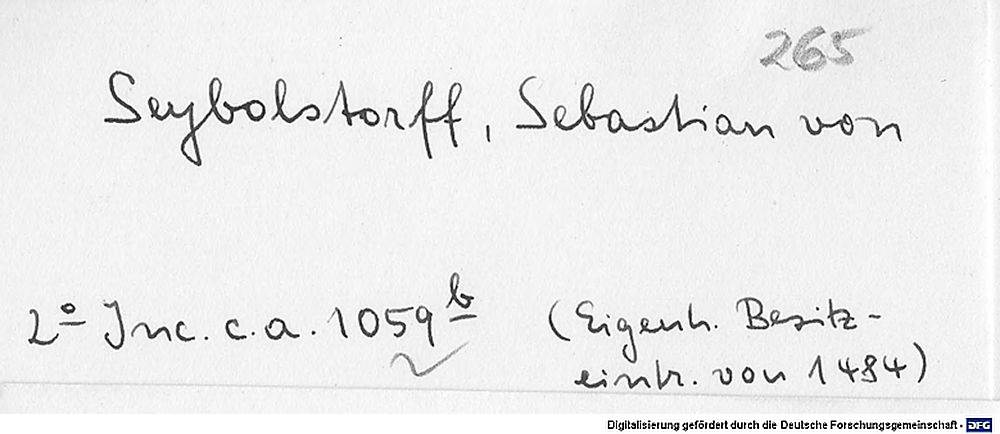 265
Seybolstorff, Sebastian von
2º Inc. c. a. 1059 b (Eigenh. Besitz-
eintr. von 1484)
Digitalisierung gefördert durch die Deutsche Forschungsgemeinschaft - DFG